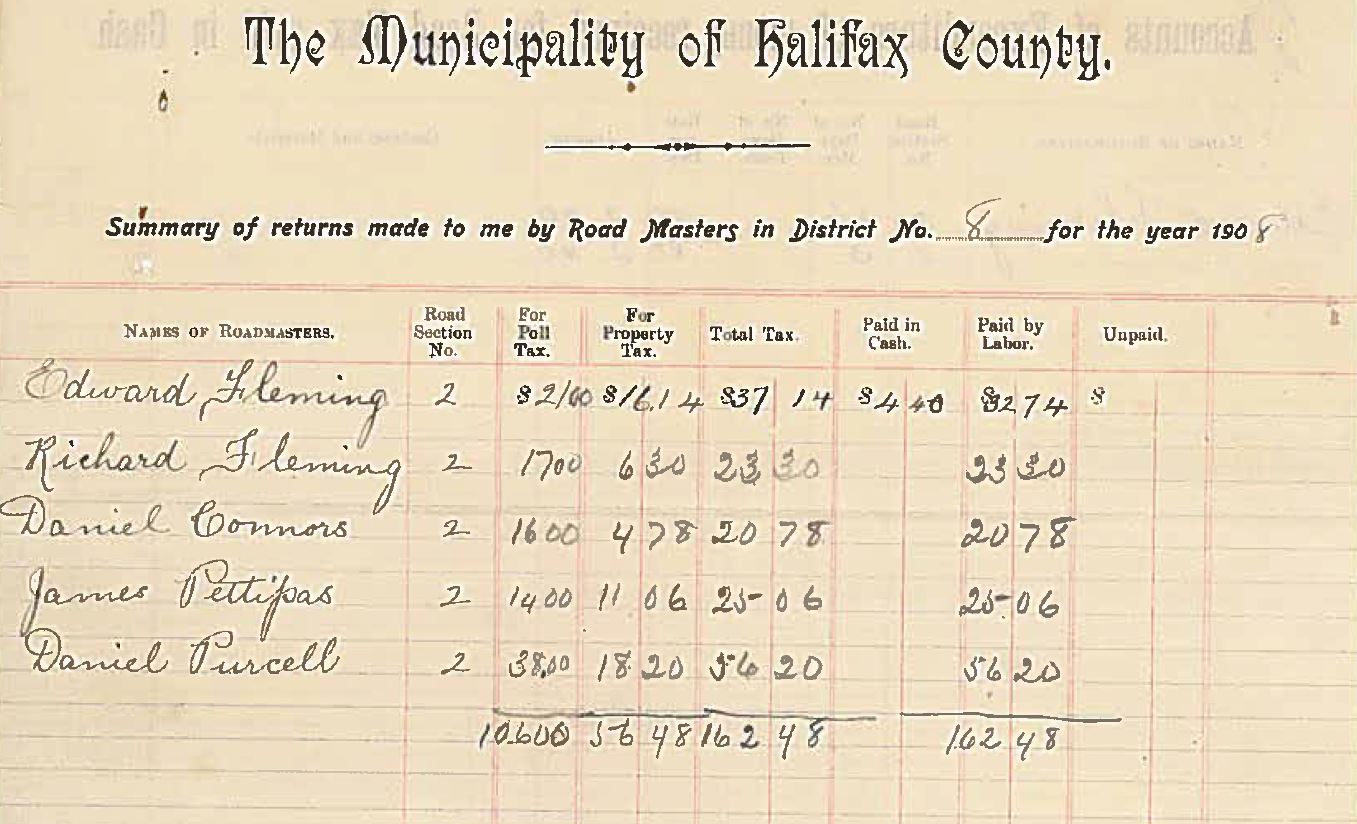 The Municipality of Halifax County.
Summary of returns made to me by Road Masters in District No. 8 for the year 1908
NAMES OF ROADMASTERS. Road Section No. For Poll Tax. For Property Tax. Total Tax. Paid in Cash. Paid by Labor. Unpaid.
Edward Fleming 2 $21 00 $16.14 $37 14 $4 40 $32 74 $
Richard Fleming 2 17 00 6 30 23 30 23 30
Daniel Connors 2 16 00 4 78 20 78 20 78
James Pettipas 2 14 00 11 06 25 06 25 06
Daniel Purcell 2 38.00 18 20 56 20 56 20
106 00 56 48 162 48 162 48